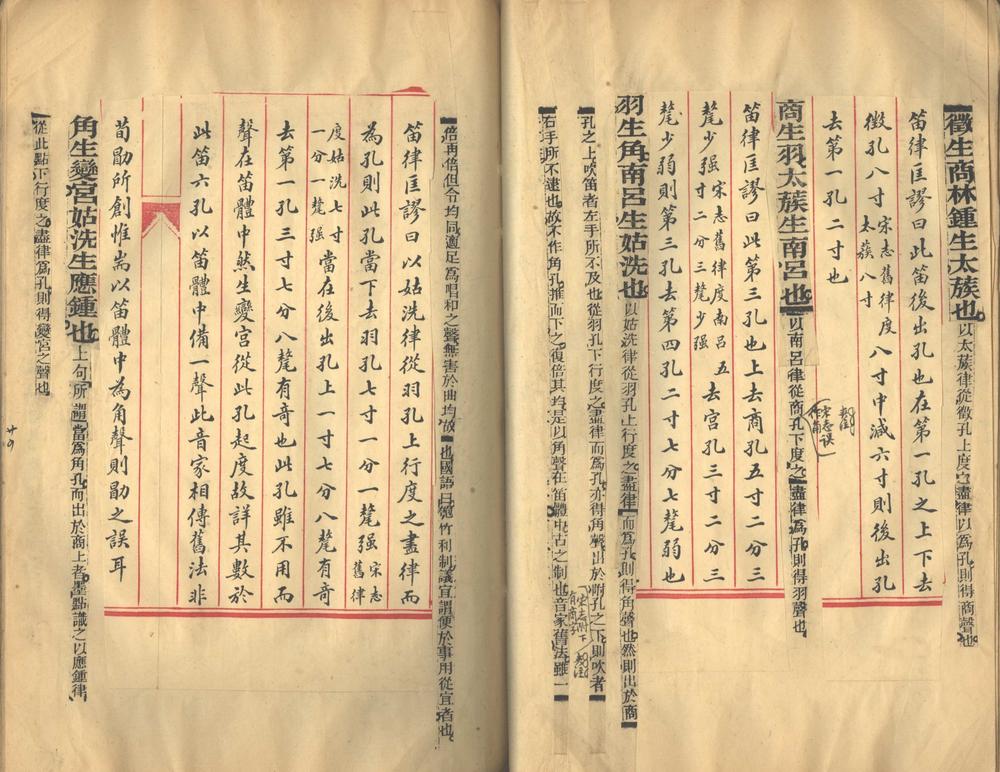 徵生商林鍾生太蔟也以太蔟律從徵孔上度之盡律以爲孔則得商聲也
笛律匡謬曰此笛後出孔也在第一孔之上下去
徵孔八寸宋志舊律度太蔟八寸八寸中減六寸則後出孔
去第一孔二寸也
商生羽太蔟生南宮也以南呂律從商孔下度之盡律爲孔則得羽聲也
笛律匡謬曰此第三孔也上去商孔五寸二分三
氂少强宋志舊律度南呂五寸二分三氂少强去宮孔三寸二分三
氂少弱則第三孔去第四孔二寸七分七氂弱也
羽生角南呂生姑洗也以姑洗律從羽孔上行度之盡律而爲孔則得角聲也然則出於商
孔之上吹笛者左手所不及也從羽孔下行度之盡律而爲孔亦得角聲出於附孔之下則吹者
宋志附下有商字
右手所不逮也故不作角孔推而下之復倍其均是以角聲在笛體中古之制也音家舊法雖一
倍再倍但令均同適足爲唱和之聲無害於曲均故也國語曰匏竹利制議宜謂便於事用從宜者也
笛律匡謬曰以姑洗律從羽孔上行度之盡律而
為孔則此孔當下去羽孔七寸一分一氂强宋志舊律
度姑洗七寸一分一氂强當在後出孔上一寸七分八氂有奇
去第一孔三寸七分八氂有奇也此孔雖不用而
聲在笛體中然生變宮從此孔起度故詳其數於
此笛六孔以笛體中備一聲此音家相傳舊法非
荀勗所創惟耑以笛體中為角聲則勗之誤耳
角生變宮姑洗生應鍾也上句所謂當爲角孔而出於商上者墨點識之以應鍾律
從此點下行度之盡律爲孔則得變宮之聲也